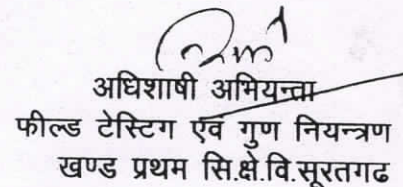 अधिशाषी अभियन्ता
फील्ड टेस्टिग एवं गुण नियन्त्रण
खण्ड प्रथम सि.क्षे.वि.सूरतगढ